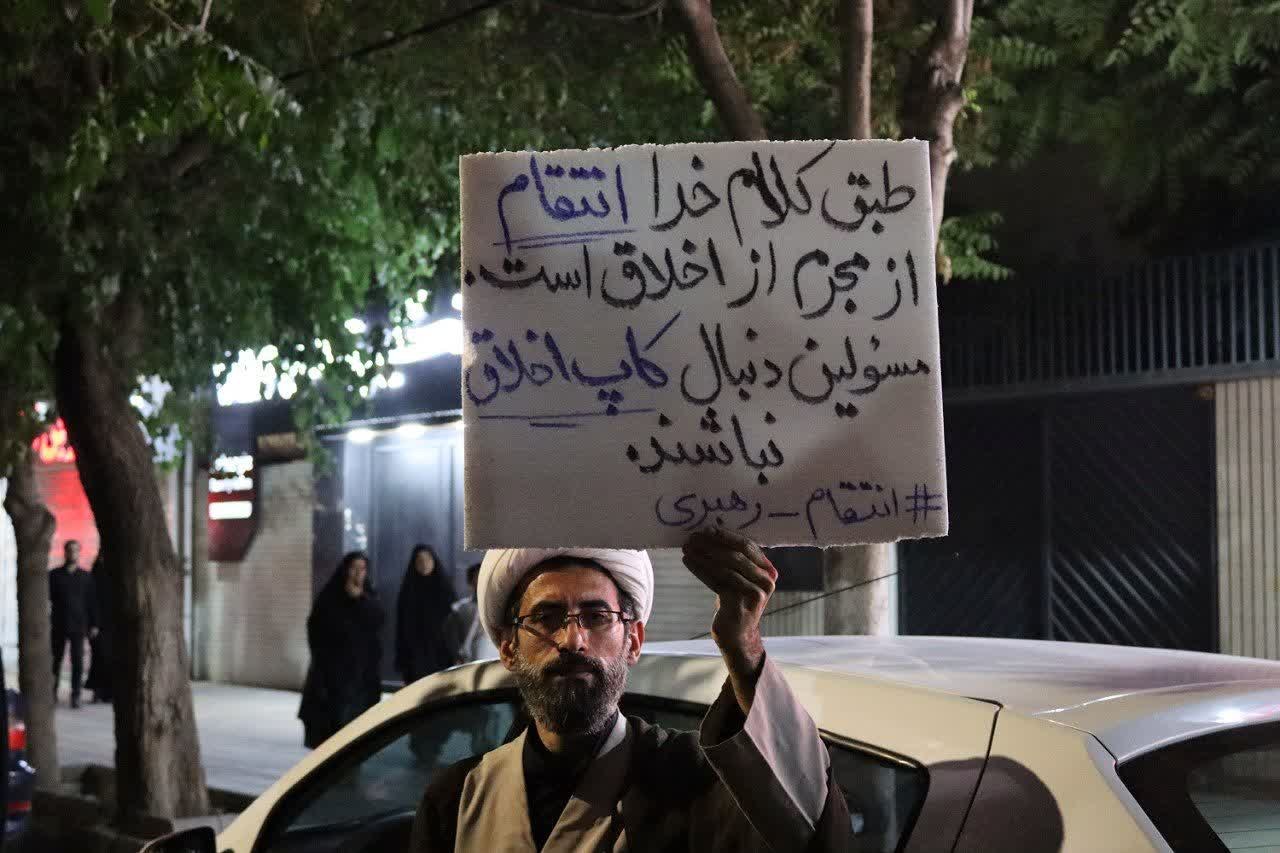 طبق کلام خدا انتقام
از مجرم از اخلاق است.
مسؤلین دنبال کاپ اخلاق
نباشند.
#انتقام_رهبری